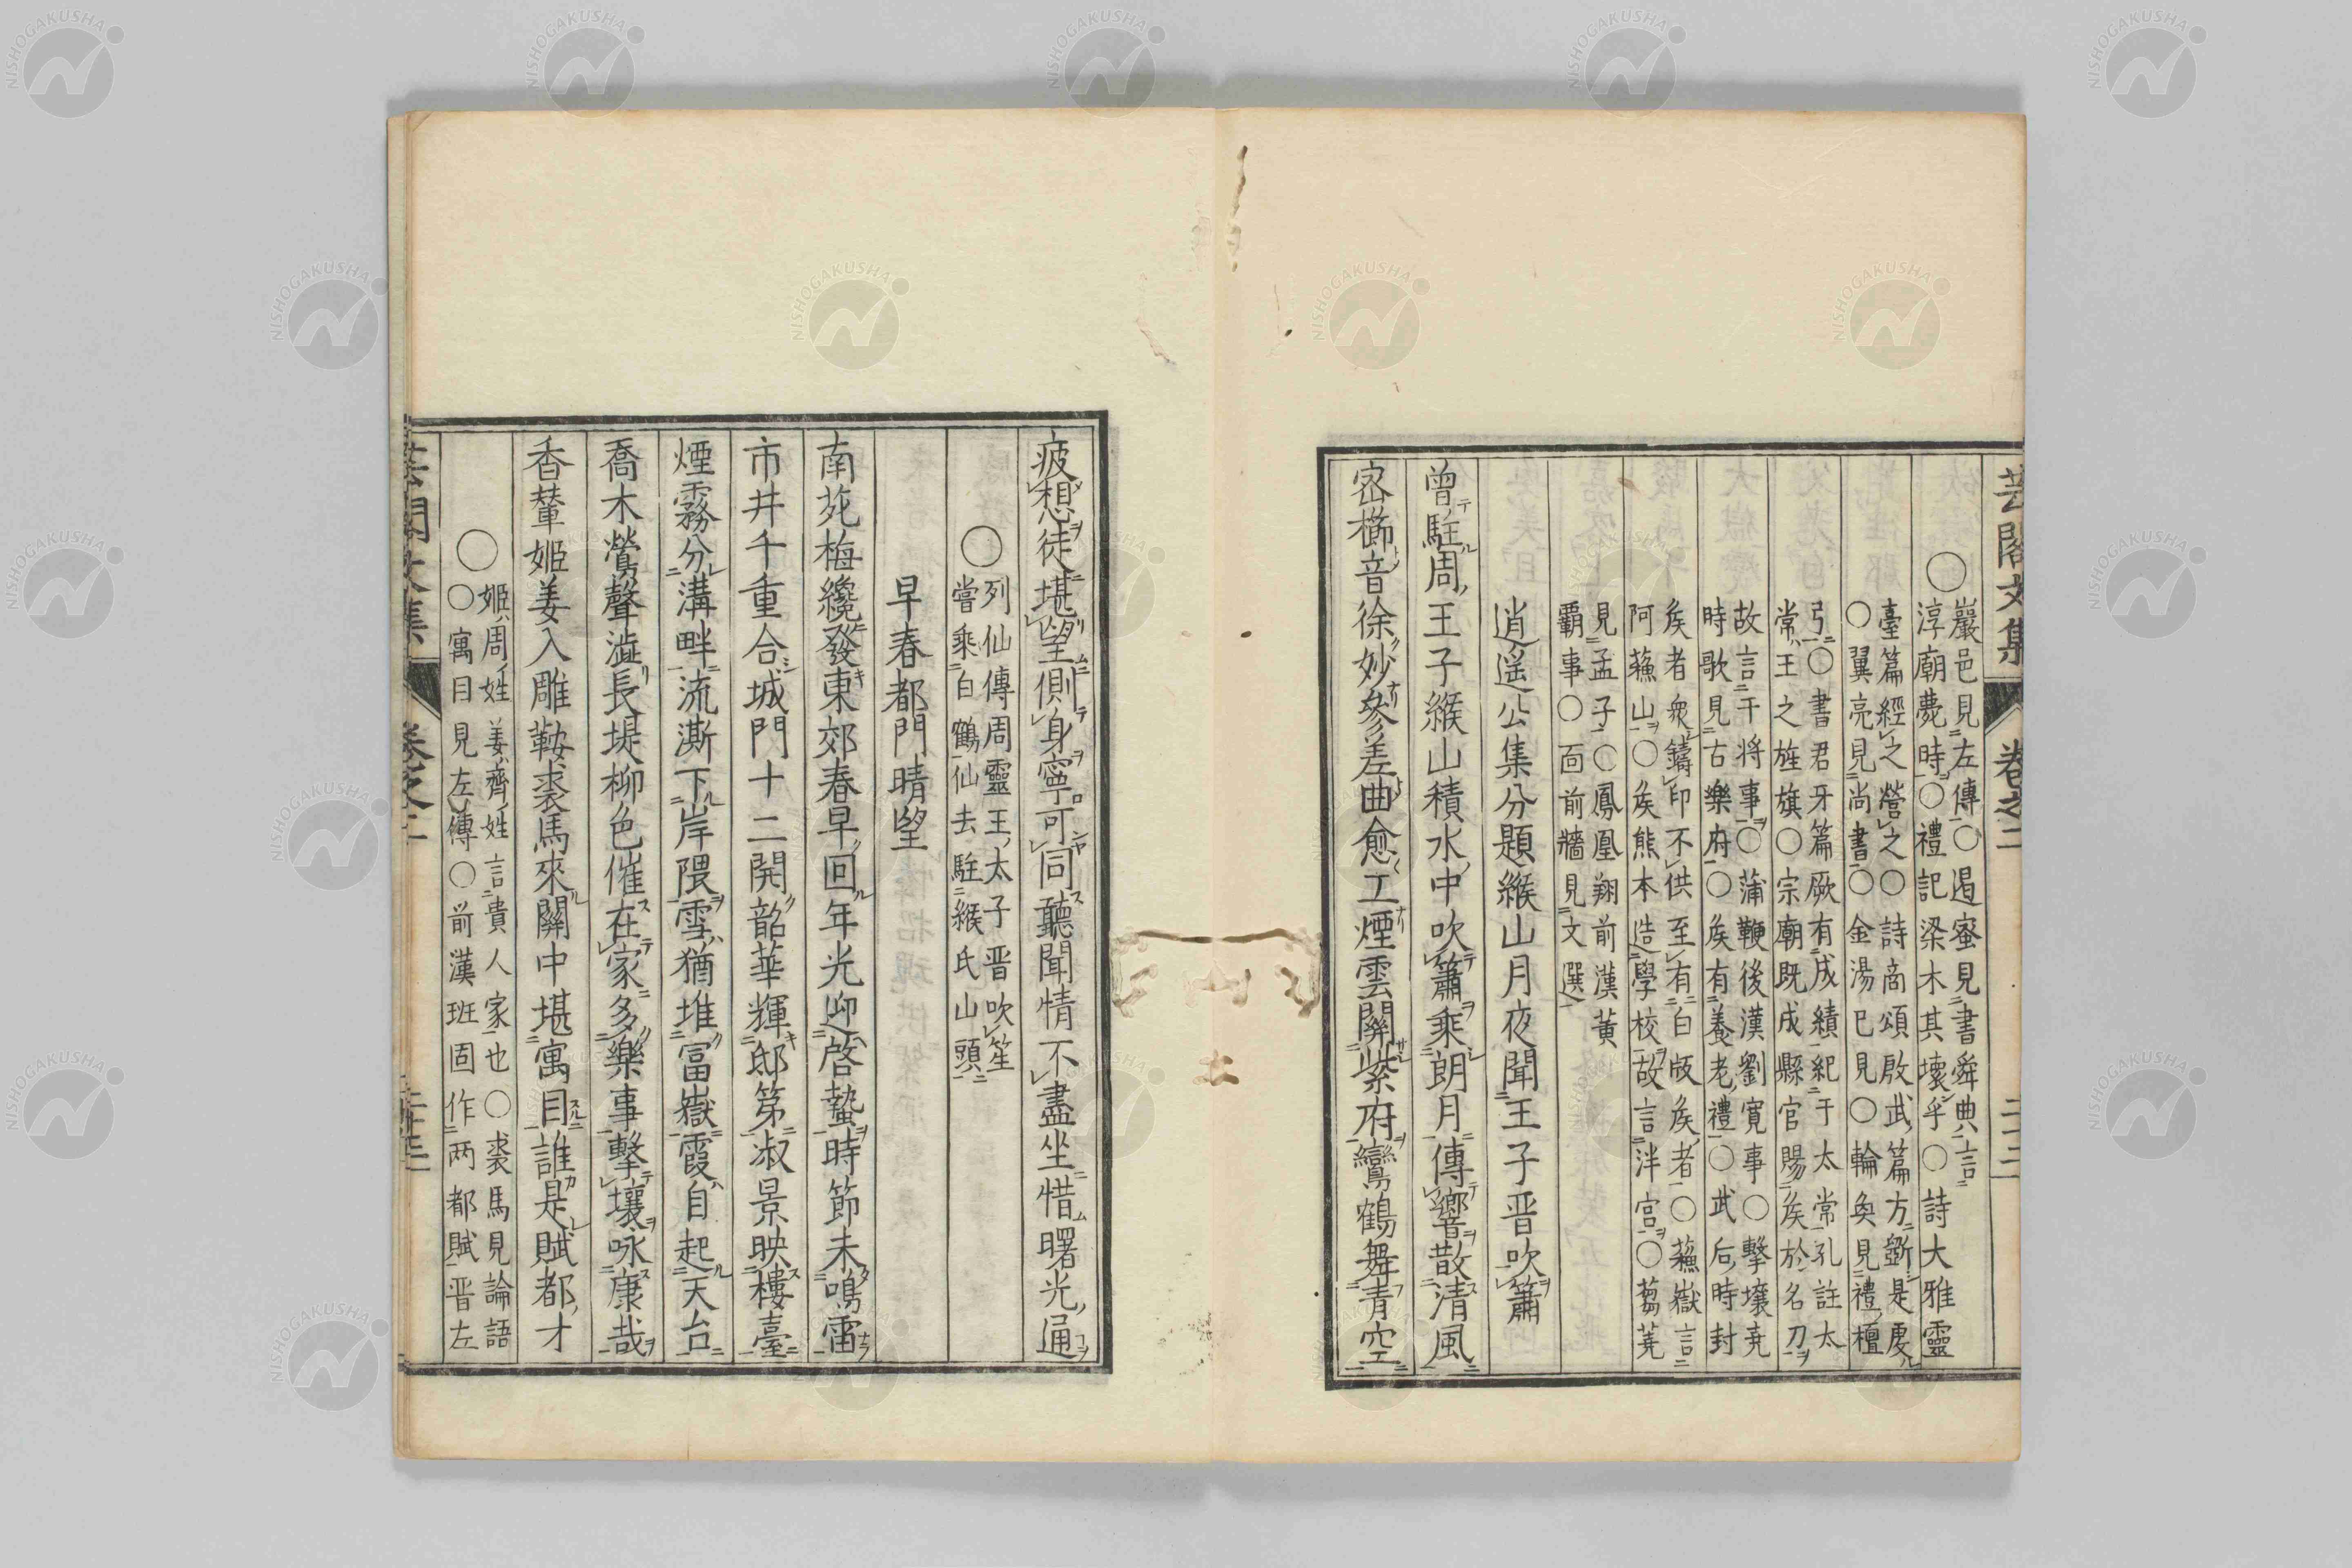 芸閣文集 卷之二 二十二
○巖邑見左傳○遏密見書舜典言
淳廟薨時○禮記梁木其壞乎○詩大雅靈
臺篇經之營之○詩商頌殷武篇方斲是虔
○翼亮見尚書○金湯已見○輪奐見禮檀
弓○書君牙篇厥有成績紀于太常孔註太
常王之旌旗○宗廟既成縣官賜矦於名刀
故言干将事○蒲鞭後漢劉寬事○擊壤堯
時歌見古樂府○矦有養老禮○武后時封
矦者衆鑄印不供至有白版矦者○蘓嶽言
阿蘓山○矦熊本造學校故言泮宫○芻蕘
見孟子○鳳凰翔前漢黄
覇事○面前牆見文選
逍遥公集分題緱山月夜聞王子晋吹簫
曾駐周王子緱山積水中吹簫乘朗月傳響散清風
宻櫛音徐妙參差曲愈工煙雲關紫府鸞鶴舞青空
疲想徒堪望側身寧可同聽聞情不盡坐惜曙光通
○列仙傳周靈王太子晋吹笙
嘗乘白鶴仙去駐緱氏山頭
早春都門晴望
南苑梅纔發東郊春早回年光迎啓蟄時節未鳴雷
市井千重合城門十二開韶華輝邸第淑景映樓臺
煙霧分溝畔流澌下岸隈雪猶堆冨嶽霞自起天台
喬木鶯聲澁長堤柳色催在家多樂事擊壤咏康哉
香輦姬姜入雕鞍裘馬來關中堪寓目誰是賦都才
○姬周姓姜齊姓言貴人家也○裘馬見論語
○寓目見左傳○前漢班固作两都賦晋左
芸閣文集 卷之二